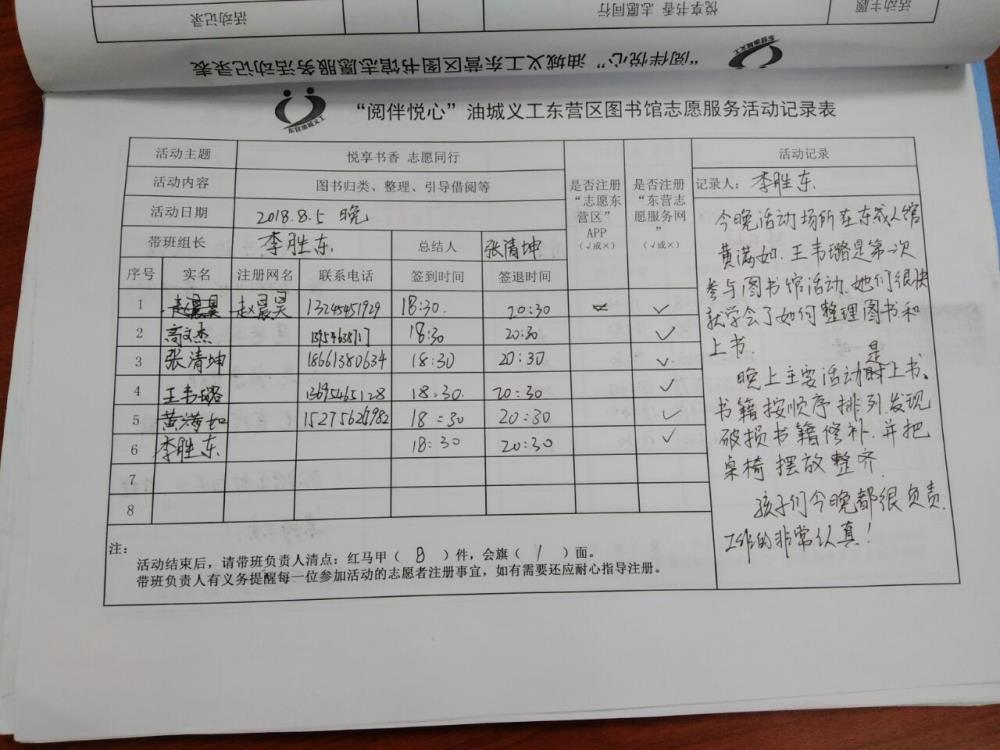 活动记录
悦享书香 志愿同行
活动主题
“阅伴悦心”油城义工东营区图书馆志愿服务活动记录表
东营油城义工
“阅伴悦心”油城义工东营区图书馆志愿服务活动记录表
东营油城义工
活动主题 悦享书香 志愿同行
活动内容 图书归类、整理、引导借阅等
活动日期 2018.8.5 晚
带班组长 李胜东 总结人 张清坤
是否注册
“志愿东
营区”
APP
(√或×)
是否注册
“东营志
愿服务网
”
(√或×)
序号 实名 注册网名 联系电话 签到时间 签退时间
1 赵晨昊 赵晨昊 13245451929 18:30. 20:30 √
2 高文杰 18:30 20:30. √
3 张清坤 18661380634 18:30 20:30 √
4 王韦璐 13695465128 18:30. 20:30 √
5 黄满如 15275626982 18:30 20:30 √
6 李胜东. 18:30 20:30 √
7
8
注:
活动结束后，请带班负责人清点：红马甲（ 8 ）件，会旗（ 1 ）面。
带班负责人有义务提醒每一位参加活动的志愿者注册事宜，如有需要还应耐心指导注册。
活动记录
记录人：李胜东.
今晚活动场所在东城人馆
黄满如.王韦璐是第一次
参与图书馆活动.她们很快
就学会了如何整理图书和
上书.
晚上主要活动是上书、
书籍按顺序排列.发现
破损书籍修补.并把
桌椅摆放整齐.
孩子们今晚都很负责.
工作的非常认真！